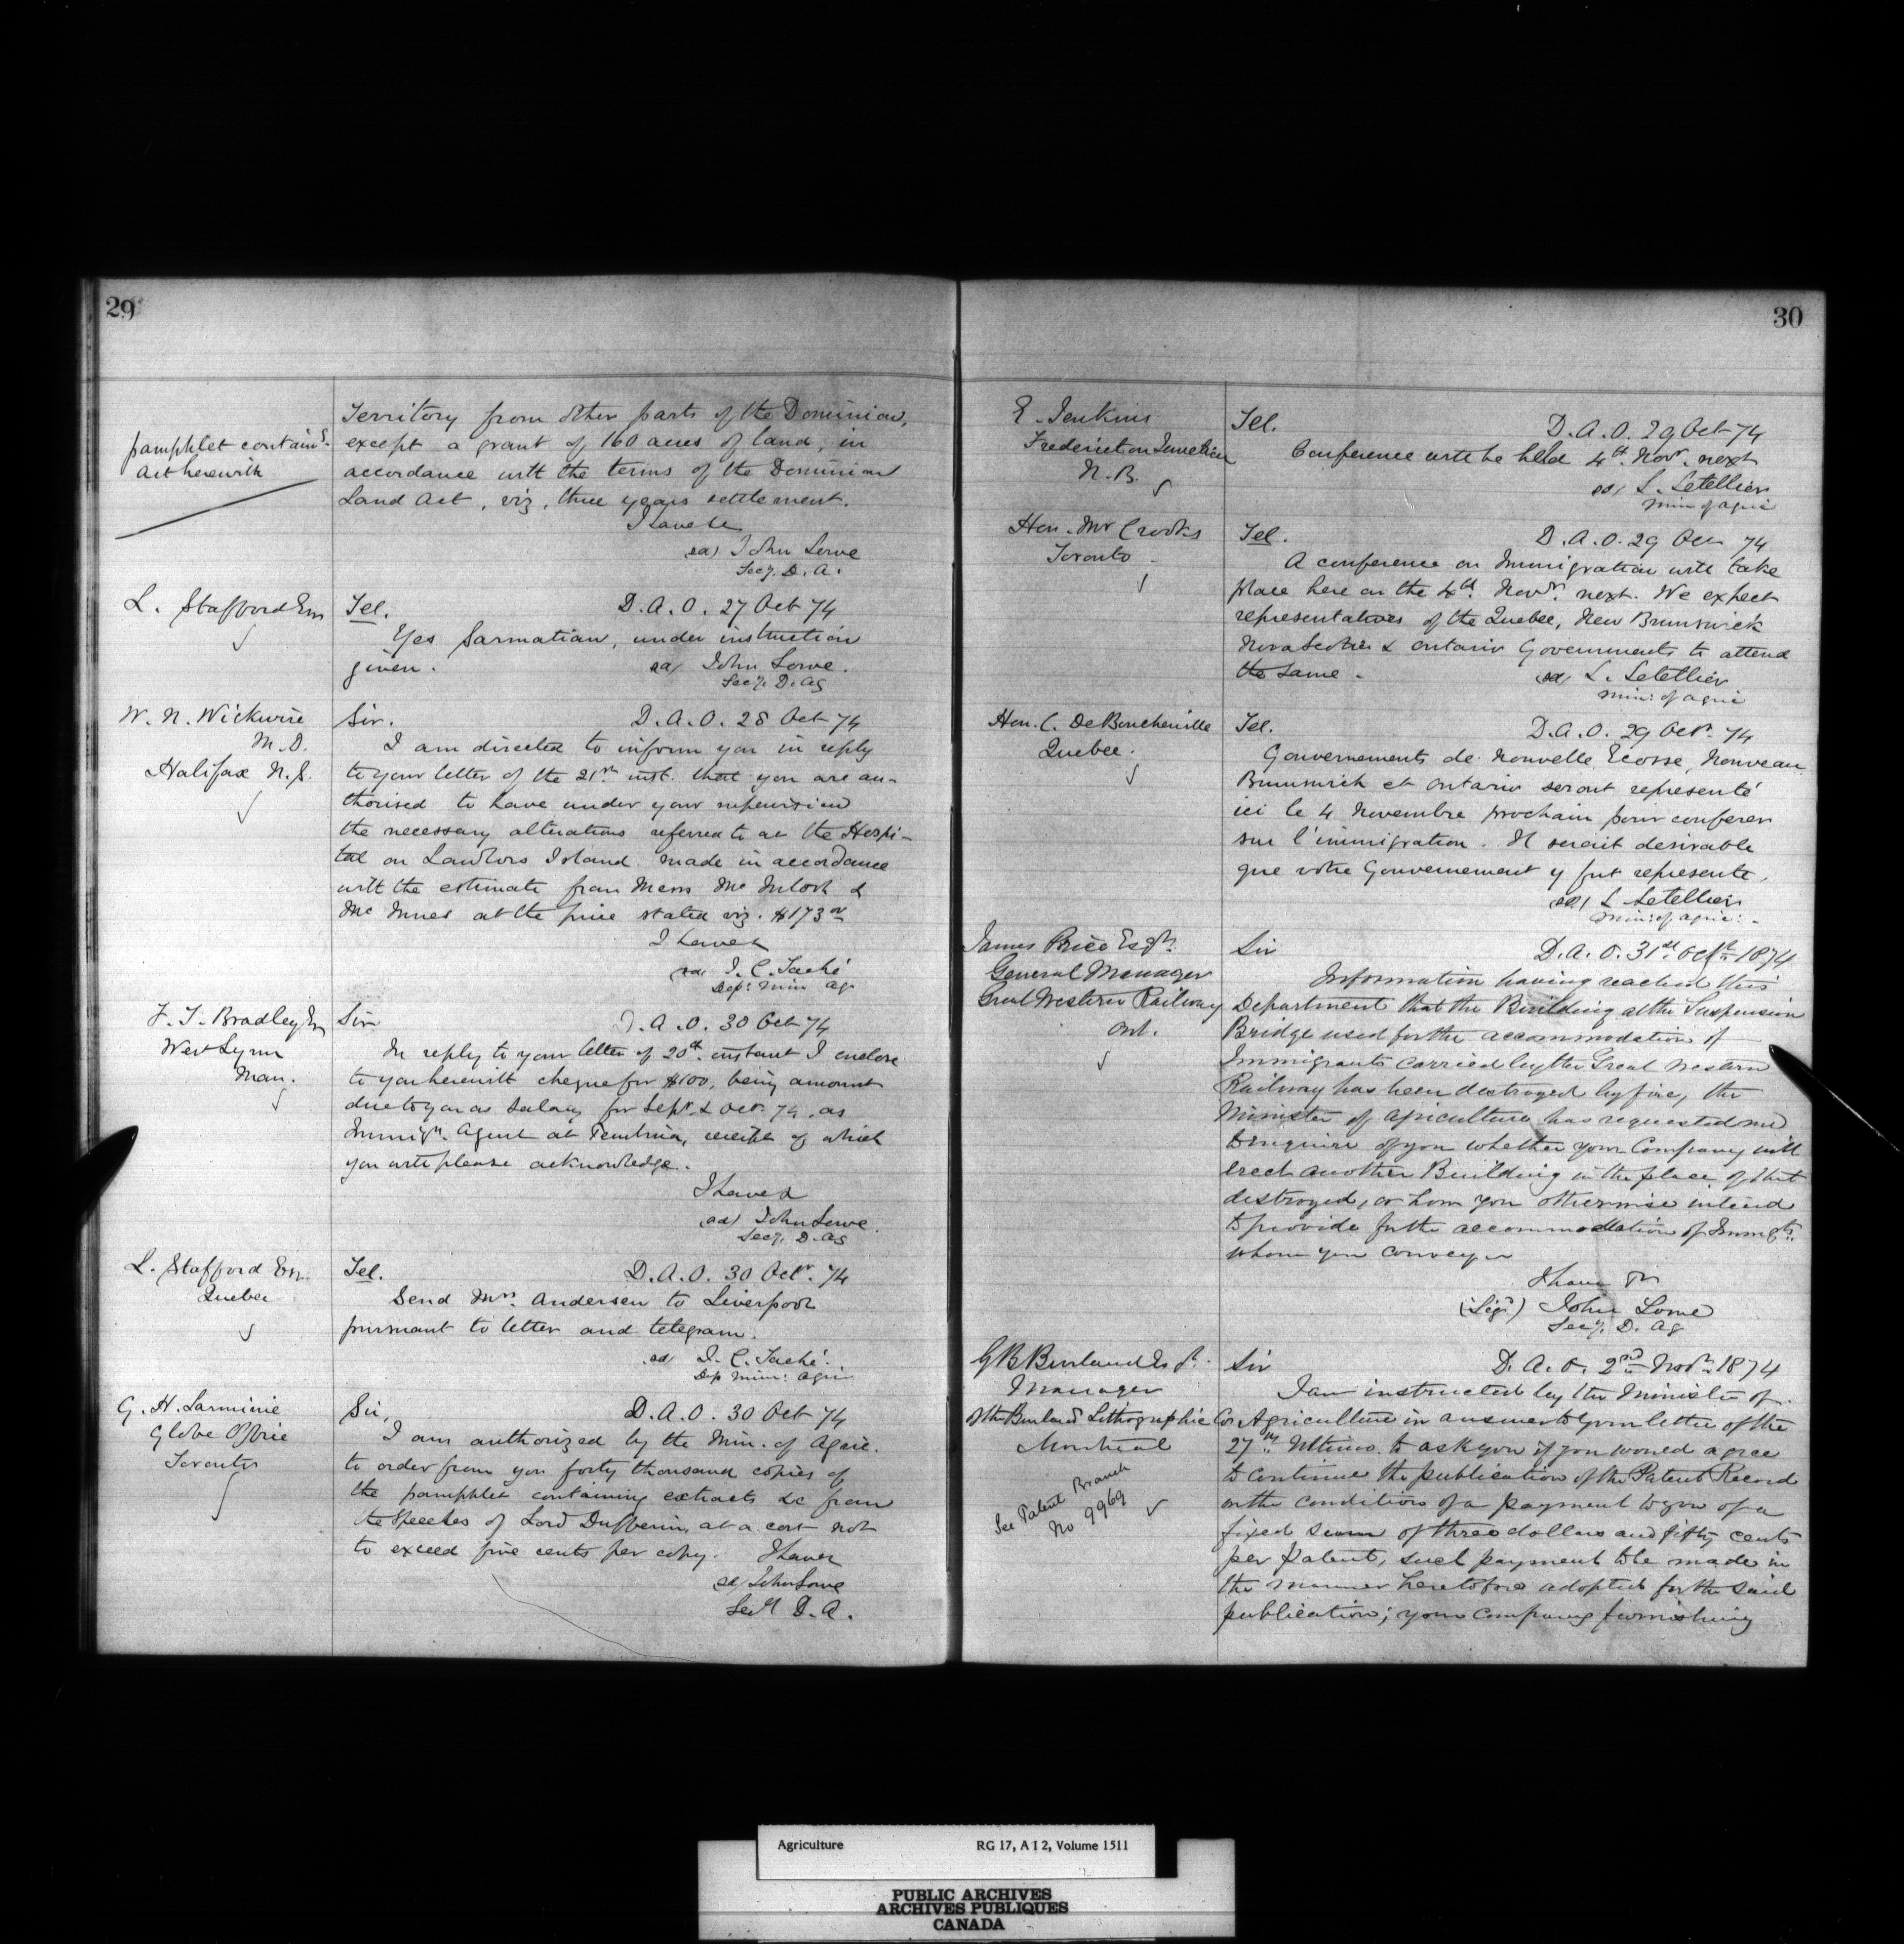 29
Territory from other parts of the Dominion,
pamphlet contaings.
Act herewith
except a grant of 160 acres of land, in
accordance with the terms of the Dominion
Land Act, viz, three years settlement.
I have &c
sd/ John Lowe
Secy. D. A.
L. Stafford Esq
Tel. D. A. O. 27 Oct 74
Yes Sarmatian, under instruction
given. sd/ John Lowe.
Secy. D. Ag
W. N. Wickwire
M. D.
Halifax N. S.
Sir. D. A. O. 28 Oct 74
I am directed to inform you in reply
to your letter of the 21st inst. that you are au-
thorised to have under your supervision
the necessary alterations referred to at the Hospi-
tal on Lawlors Island made in accordance
with the estimate from Messrs McIntosh &
McInnes at the price stated viz. $173
I have &
sd/ J. C. Taché
Dep: Min Ag.
F. T. Bradley Esq
West Lynn
Man.
Sir D. A. O. 30 Oct 74
In reply to your letter of 20th instant I enclose
to you herewith cheque for $100, being amount
due to you as Salary for Sept. & Oct. 74, as
Immign. Agent at Pembina, receipt of which
you will please acknowledge.
I have &
sd/ John Lowe.
Secy. D. Ag
L. Stafford Esq.
Quebec
Tel. D. A. O. 30 Oct. 74
Send Mrs. Andersen to Liverpool
pursuant to letter and telegram.
sd J. C. Taché.
Dep Min: Agri
G. H. Larminie
Globe Office
Toronto
Sir, D. A. O. 30 Oct 74
I am authorized by the Min. of Agric.
to order from you forty thousand copies of
the pamphlet containing extracts &c from
the Speeches of Lord Dufferin, at a cost not
to exceed five cents per copy. I have &
sd/ John Lowe
Secy D. A.
30
E. Jenkins
Fredericton Junction
N. B.
Tel. D. A. O. 29 Oct 74
Conference will be held 4th. Novr. next
sd/ L. Letellier
Min of Agric
Hon. Mr Crooks
Toronto
Tel. D. A. O. 29 Oct 74
A conference on Immigration will take
place here on the 4th. Novr. next. We expect
representatives of the Quebec, New Brunswick
Nova Scotia & Ontario Governments to attend
the same. sd/ L. Letellier
Min: of Agric
Hon. C. DeBoucherville
Quebec.
Tel. D. A. O. 29 Oct. 74
Gouvernements de Nouvelle Ecosse, Nouveau
Brunswick et Ontario seront representé
ici le 4 Novembre prochain pour conferer
sur l'immigration. Il serait desirable
que votre Gouvernement y fut represente.
sd/ L Letellier
Min: of Agric:
James Price Esqr.
General Manager
Great Western Railway
Ont.
Sir D. A. O. 31st Octr 1874
Information having reached this
Department that the Building at the Suspension
Bridge used for the accommodation of
Immigrants carried by the Great Western
Railway has been destroyed by fire, the
Minister of Agriculture has requested me
to enquire of you whether your Company will
erect another Building in the place of that
destroyed, or how you otherwise intend
to provide for the accommodation of Immgts.
whom you convey
I have &c
(Sigd) John Lowe
Secy. D. Ag
G B Burland Esqr.
Manager
of the Burland Lithographic Co
Montreal
See Patent Branch
No 9969
Sir D. A. O. 2nd Novr 1874
I am instructed by the Minister of
Agriculture in answer to your letter of the
27th Ultimo. to ask you if you would agree
to continue the publication of the Patent Record
on the condition of a payment to you of a
fixed sum of three dollars and fifty cents
per patent, such payment to be made in
the manner heretofore adopted for the said
publication; your company furnishing
Agriculture RG 17, A I 2, Volume 1511
PUBLIC ARCHIVES
ARCHIVES PUBLIQUES
CANADA